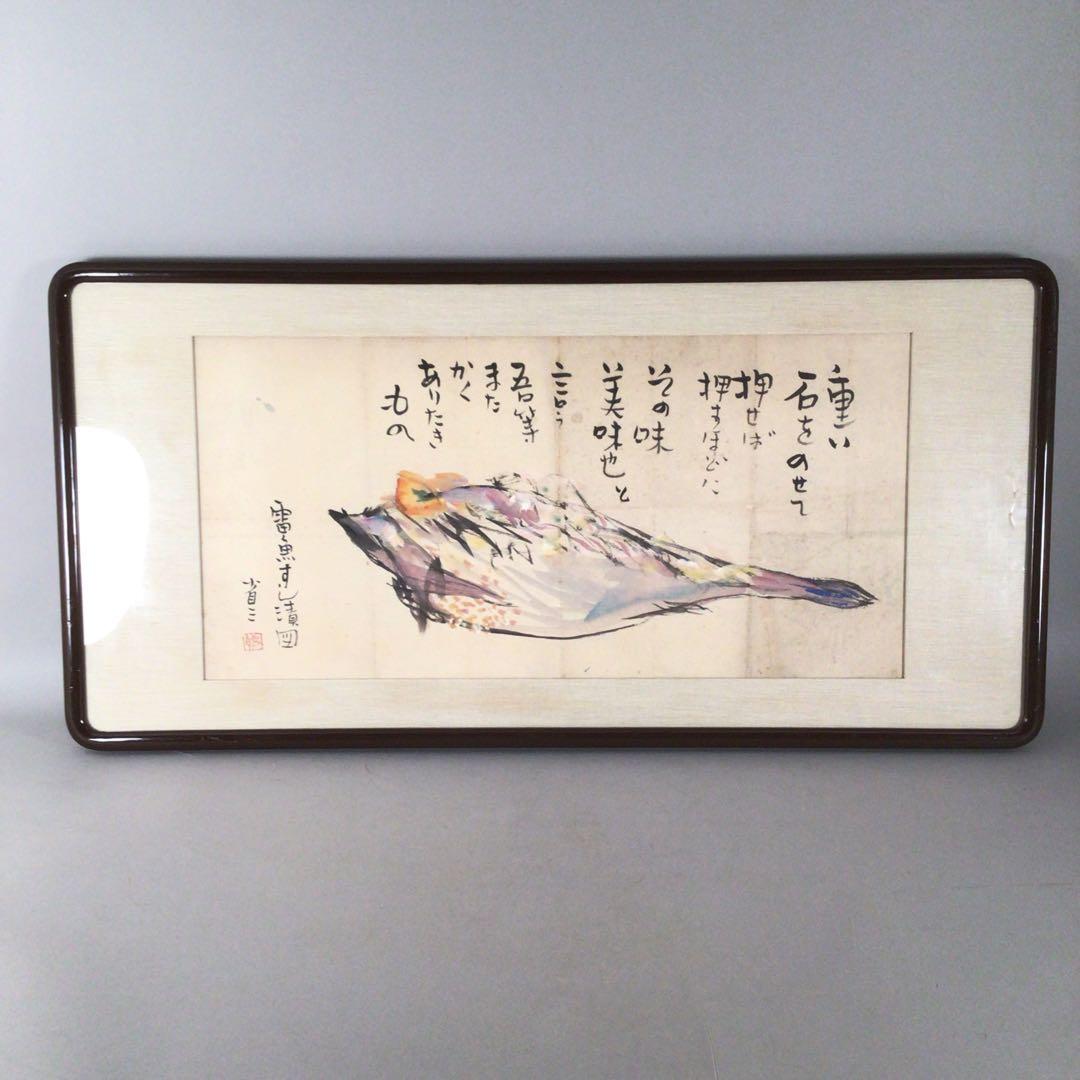 重い
石をのせて
押せば
押すほどに
その味
美味也と
言う
吾等
また
かく
ありたき
もの
雷魚すし漬図
省三